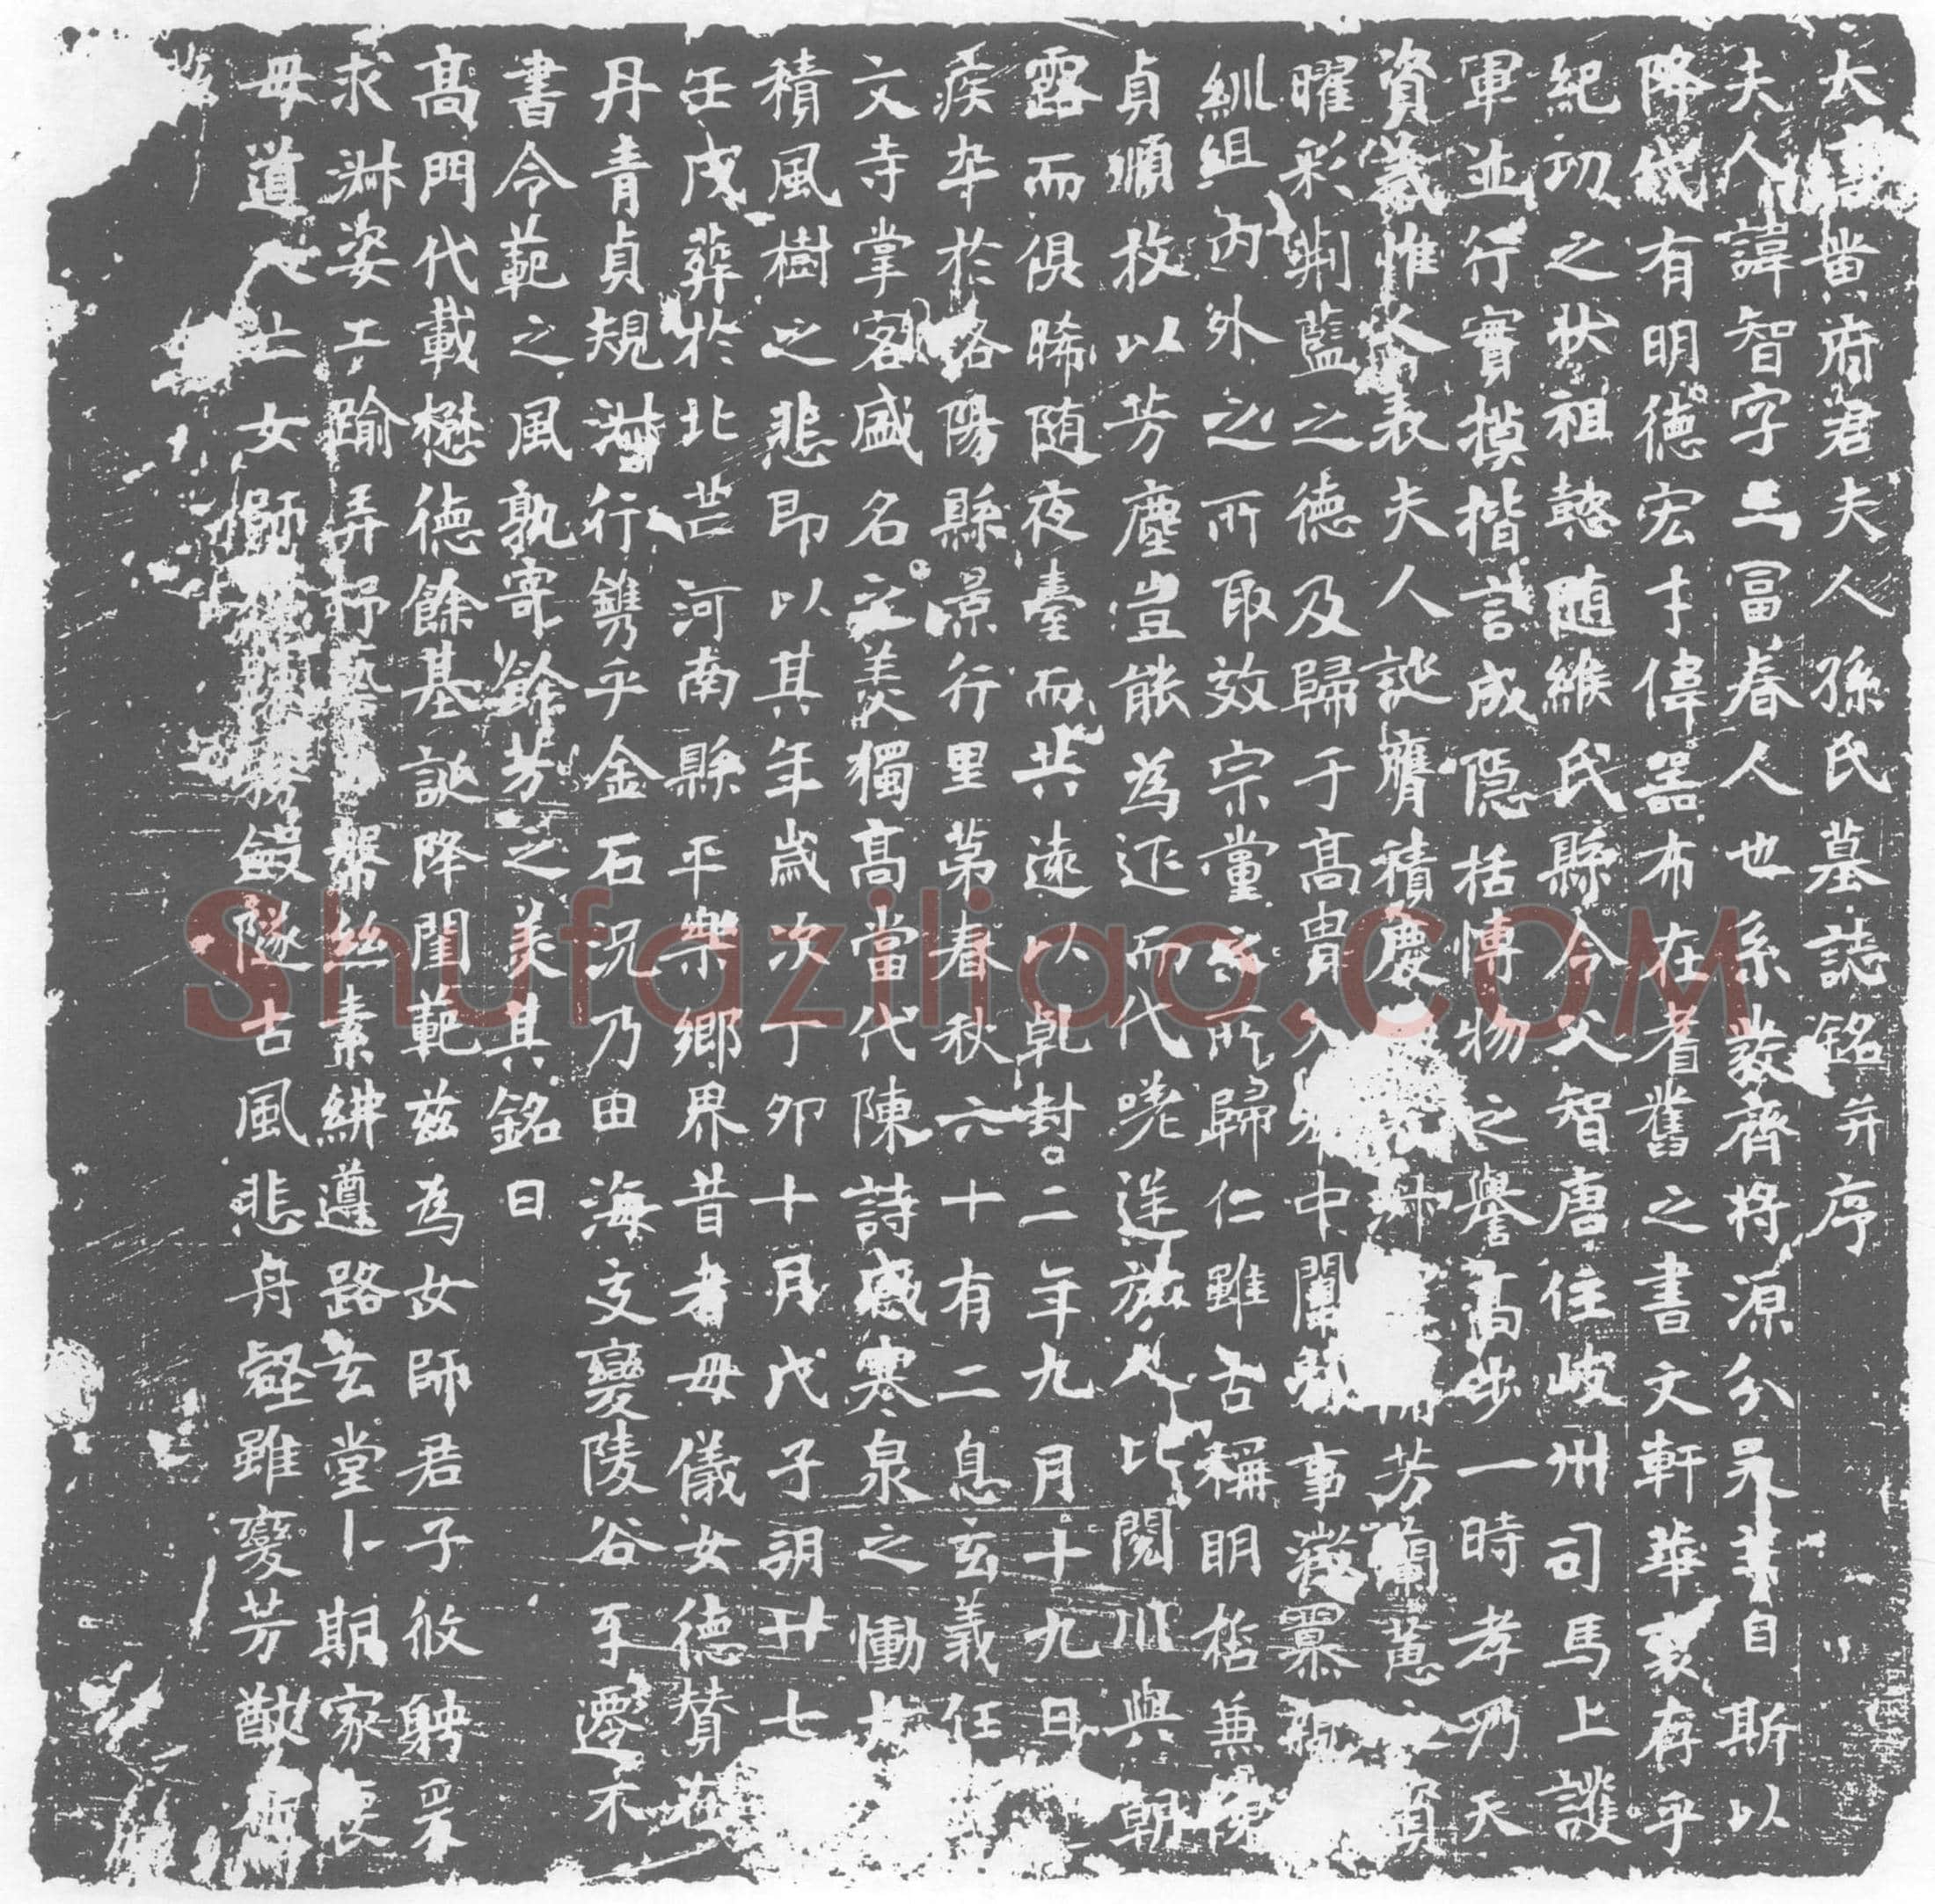 大唐故董府君夫人孫氏墓誌銘并序
夫人諱智字二冨春人也系裴齊將源分吴自斯以
降代有明德宏才偉器布在耆舊之書文軒華袞存乎
紀功之狀祖愁随緱氏縣令父智唐任岐州司馬上護
軍並行實摸揩言成隱括博物之譽高步一時孝乃天
資義惟表夫人誕膺積慶芳蘭蕙之貞
曜彩荆藍之德及歸于高胄入中闈事
紃組内外之所取效宗黨之所歸仁雖古稱明悊兼
貞順攸以芳塵豈能為迩而代嘆逆旅人比閱川與朝
露而俱晞随夜臺而共遠以乾封二年九月十九日
疾卒於洛陽縣景行里第春秋六十有二息玄義任
文寺掌客盛名之美獨高當代陳詩感寒泉之慟
積風樹之悲即以其年歲次丁卯十月戊子朔廿七
壬戌葬於北芒河南縣平樂鄉界昔者母儀女德贊在
丹青貞規淋行鐫乎金石况乃由海文變陵谷平遷不
書令範之風孰寄餘芳之美其銘曰
高門代載懋德餘基誕降閨範兹為女師君子攸娉采
求淋姿工踰弄杼藝槃丝素紼遵路玄堂卜期家
母道士女師務鏡隧古風悲舟壑雖變芳猷
Shufaziliao.COM